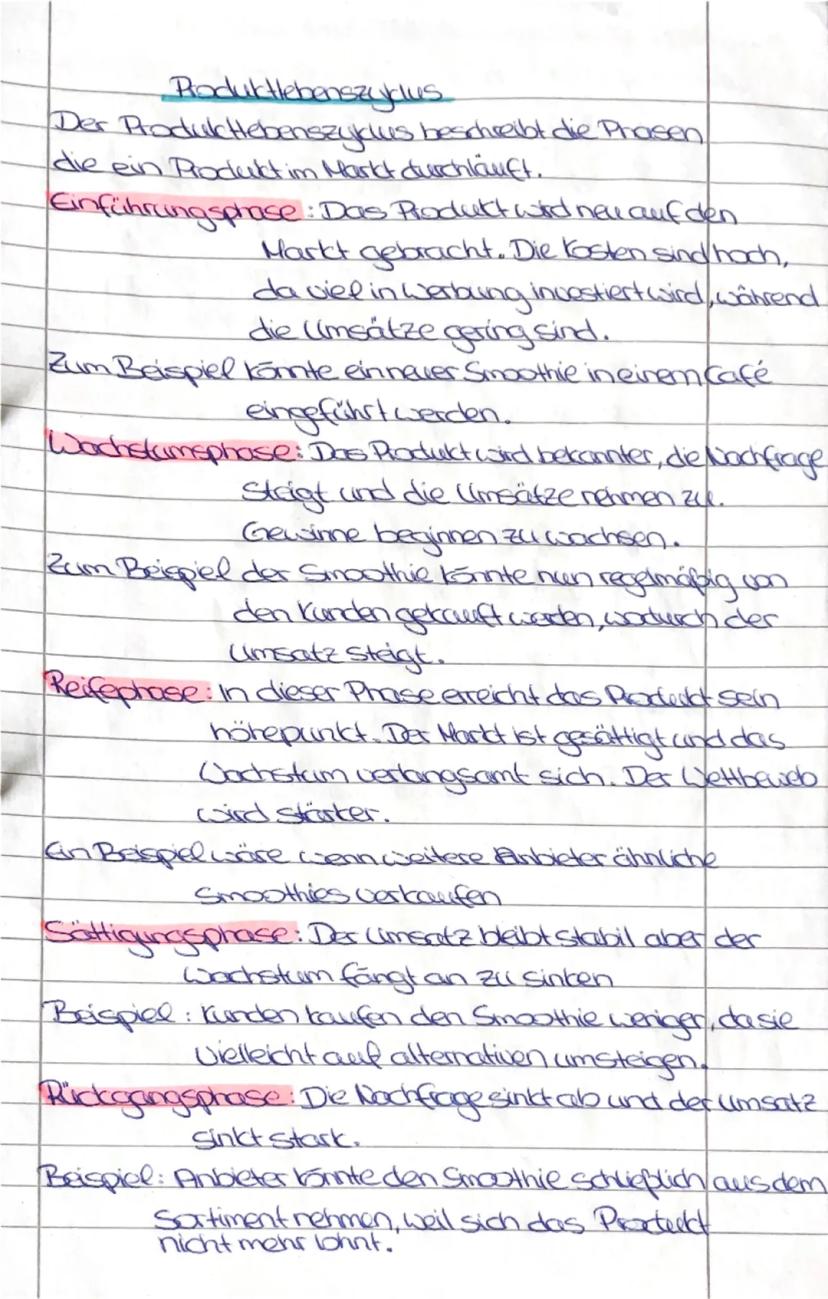 Produktlebenszyklus
Der Produktlebenszyklus beschreibt die Phasen
die ein Produkt im Markt durchläuft.
Einführungsphase: Das Produkt wird neu auf den
Markt gebracht. Die Kosten sind hoch,
da viel in Werbung investiert wird, während
die Umsätze gering sind.
Zum Beispiel könnte ein neuer Smoothie in einem Café
eingeführt werden.
Wachstumsphase: Das Produkt wird bekannter, die Nachfrage
steigt und die Umsätze nehmen zu.
Gewinne beginnen zu wachsen.
Zum Beispiel der Smoothie könnte nun regelmäßig von
den Kunden gekauft werden, wodurch der
Umsatz steigt.
Reifephase: In dieser Phase erreicht das Produkt sein
höhepunkt. Der Markt ist gesättigt und das
Wachstum verlangsamt sich. Der Wettbewerb
wird stärker.
Ein Beispiel wäre wenn weitere Anbieter ähnliche
Smoothies verkaufen
Sättigungsphase: Der Umsatz bleibt stabil aber der
Wachstum fängt an zu sinken
Beispiel: Kunden kaufen den Smoothie weniger, da sie
vielleicht auf alternativen umsteigen.
Rückgangsphase: Die Nachfrage sinkt ab und der Umsatz
sinkt stark.
Beispiel: Anbieter könnte den Smoothie schließlich aus dem
Sortiment nehmen, weil sich das Produkt
nicht mehr lohnt.